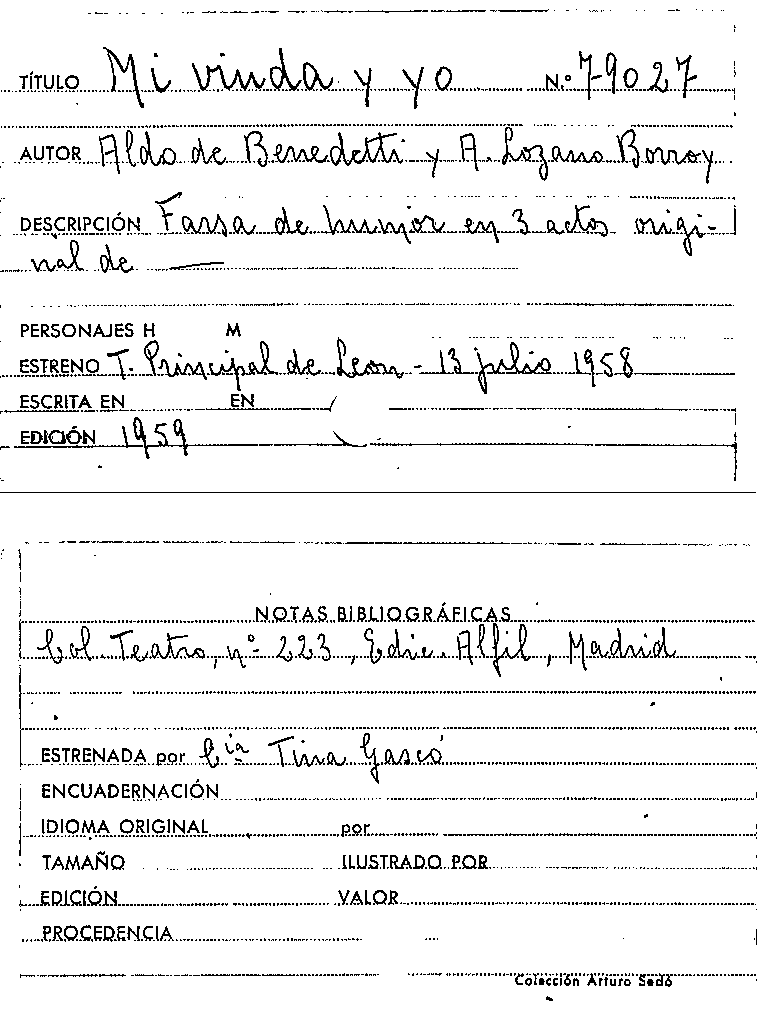 TÍTULO Mi viuda y yo N.º 79027
AUTOR Aldo de Benedetti y A. Lozano Borroy
DESCRIPCIÓN Farsa de humor en 3 actos origi-
nal de —
PERSONAJES H M
ESTRENO T. Principal de Leon - 13 julio 1958
ESCRITA EN EN
EDICIÓN 1959
NOTAS BIBLIOGRÁFICAS
Col. Teatro, nº 223, Edic. Alfil, Madrid
ESTRENADA por Cía Tina Gascó
ENCUADERNACIÓN
IDIOMA ORIGINAL por
TAMAÑO ILUSTRADO POR
EDICIÓN VALOR
PROCEDENCIA
Colección Arturo Sedó